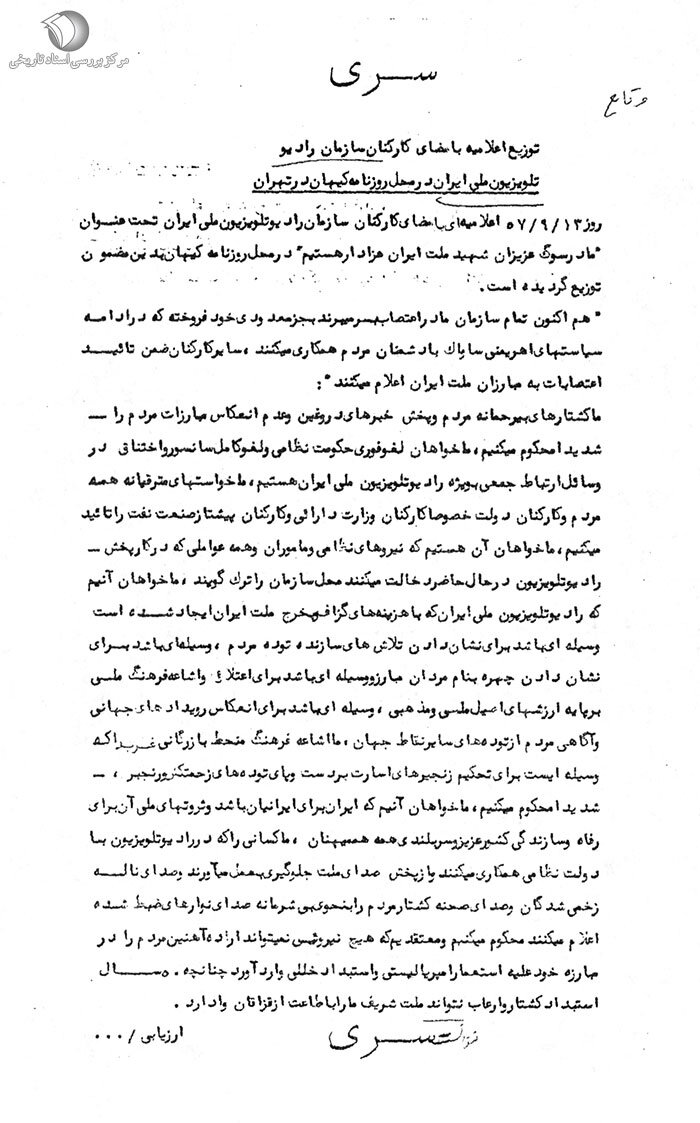 مرکز بررسی اسناد تاریخی
سری
توزیع اعلامیه بامضای کارکنان سازمان رادیو
تلویزیون ملی ایران در محل روزنامه کیهان در تهران
روز ۵۷/۹/۱۳ اعلامیه‌ای بامضای کارکنان سازمان رادیو تلویزیون ملی ایران تحت عنوان
"ما در سوگ عزیزان شهید ملت ایران عزادار هستیم" در محل روزنامه کیهان بدین مضمون
توزیع گردیده است.
"هم اکنون تمام سازمان ما در اعتصاب بسر میبرند بجز معدودی خود فروخته که در ادامه
سیاستهای اهریمنی ساواک با دشمنان مردم همکاری میکنند، سایر کارکنان ضمن تائید
اعتصابات به مبارزان ملت ایران اعلام میکنند":
ما کشتارهای بیرحمانه مردم و پخش خبرهای دروغین و عدم انعکاس مبارزات مردم را ـ
شدیدا محکوم میکنیم، ما خواهان لغو فوری حکومت نظامی و لغو کامل سانسور و اختناق در
وسائل ارتباط جمعی بویژه رادیو تلویزیون ملی ایران هستیم، ما خواستهای مترقیانه همه
مردم و کارکنان دولت خصوصا کارکنان وزارت دارائی و کارکنان پیشتاز صنعت نفت را تائید
میکنیم، ما خواهان آن هستیم که نیروهای نظامی و ماموران و همه عواملی که در کار پخش ـ
رادیو تلویزیون در حال حاضر دخالت میکنند محل سازمان را ترک گویند، ما خواهان آنیم
که رادیو تلویزیون ملی ایران که با هزینه‌های گزاف و بخرج ملت ایران ایجاد شده است
وسیله ای باشد برای نشان دادن تلاش های سازنده توده مردم، وسیله‌ای باشد برای
نشان دادن چهره بنام مردان مبارز و وسیله ای باشد برای اعتلاء و اشاعه فرهنگ ملی
بر پایه ارزشهای اصیل ملی و مذهبی، وسیله ای باشد برای انعکاس رویدادهای جهانی
و آگاهی مردم از توده های سایر نقاط جهان، ما اشاعه فرهنگ منحط بازرگانی غرب را که
وسیله ایست برای تحکیم زنجیرهای اسارت بر دست و پای توده های زحمتکش و رنجبر، ـ
شدیدا محکوم میکنیم، ما خواهان آنیم که ایران برای ایرانیان باشد و ثروتهای ملی آن برای
رفاه و سازندگی کشور عزیز و سربلندی همه همیهنان، ما کسانی را که در رادیو تلویزیون با
دولت نظامی همکاری میکنند و از پخش صدای ملت جلوگیری بعمل میآورند و صدای ناله
زخمی شدگان و صدای صحنه کشتار مردم را بنحوی بی شرمانه صدای نوارهای ضبط شده
اعلام میکنند محکوم میکنیم و معتقدیم که هیچ نیروئیسی نمیتواند اراده آهنین مردم را در
مبارزه خود علیه استعمار امپریالیستی و استبداد خللی وارد آورد چنانچه. سال
استبداد کشتار و ارعاب نتواند ملت شریف ما را باطاعت از قزاقان وادارد.
سری
ارزیابی / ۰۰۰